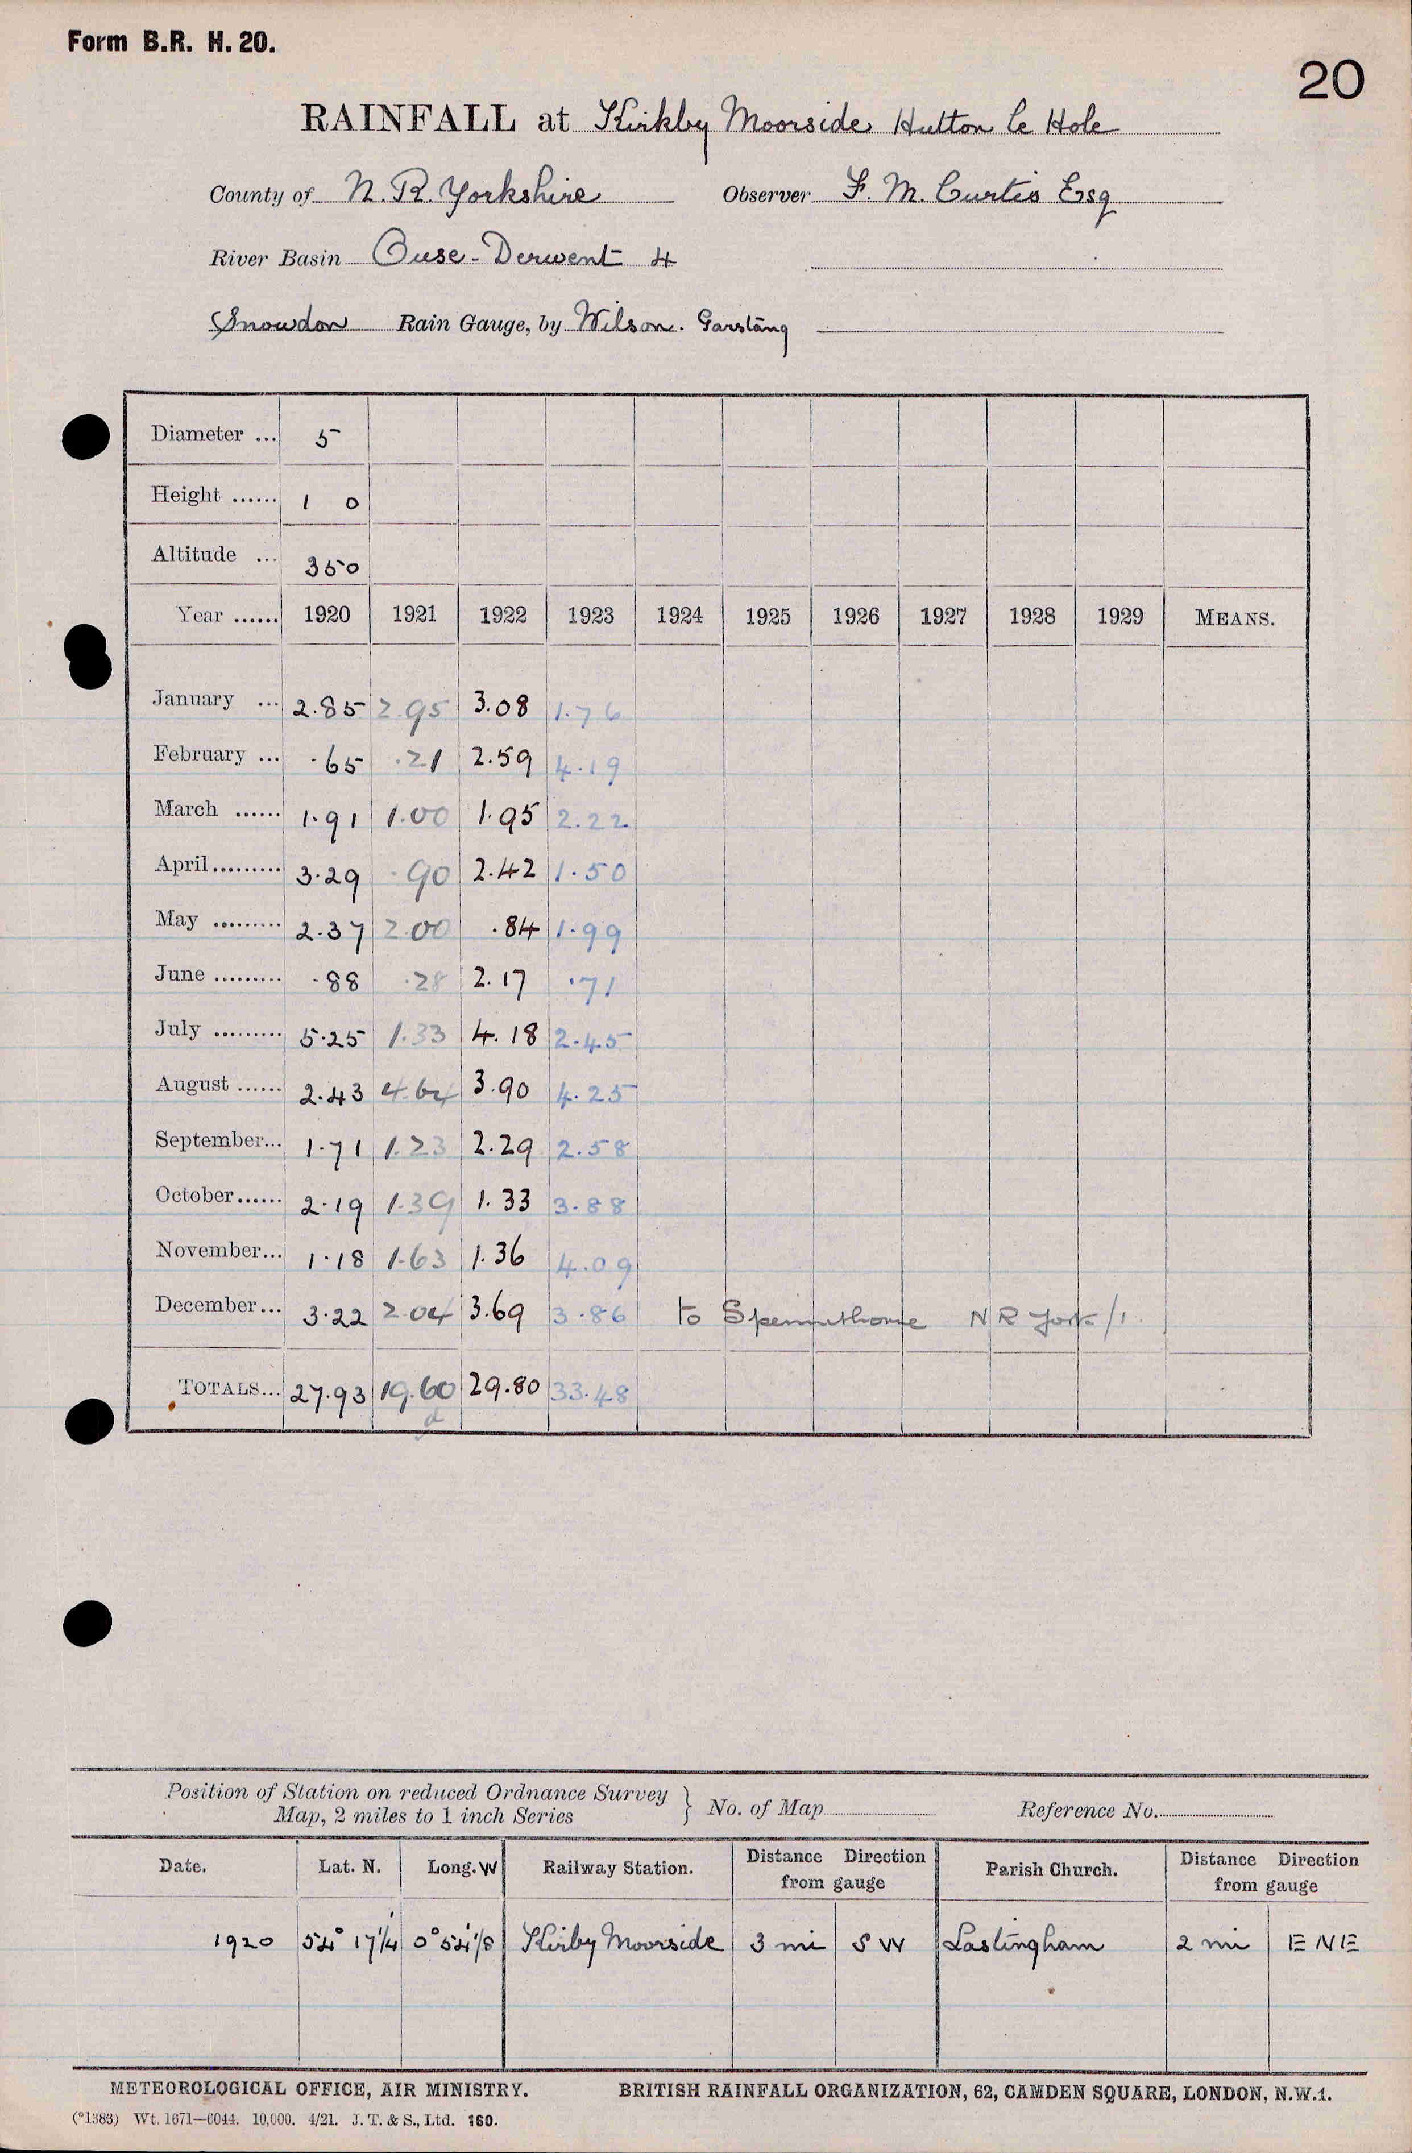 Form B.R. H. 20.
20
RAINFALL at Kirkby Moorside Hutton le Hole
County of N. R. Yorkshire Observer F. M. Curtis Esq
River Basin Ouse-Derwent 4
Snowdon Rain Gauge, by Wilson. Garstang
Diameter ... 5
Height ...... 1 0
Altitude ... 350
Year ...... 1920 1921 1922 1923 1924 1925 1926 1927 1928 1929 MEANS.
January ... 2.85 2.95 3.08 1.76
February ... .65 .21 2.59 4.19
March ...... 1.91 1.00 1.95 2.22
April......... 3.29 .90 2.42 1.50
May ......... 2.37 2.00 .84 1.99
June ......... .88 .28 2.17 .71
July ......... 5.25 1.33 4.18 2.45
August ...... 2.43 4.64 3.90 4.25
September... 1.71 1.23 2.29 2.58
October...... 2.19 1.39 1.33 3.88
November... 1.18 1.63 1.36 4.09
December... 3.22 2.04 3.69 3.86 to Spennithorne N R York/1
TOTALS... 27.93 19.60 29.80 33.48
Position of Station on reduced Ordnance Survey
Map, 2 miles to 1 inch Series } No. of Map Reference No.
Date. Lat. N. Long. W Railway Station. Distance Direction from gauge Parish Church. Distance Direction from gauge
1920 54° 17'1/4 0° 54'1/8 Kirby Moorside 3 mi S W Lastingham 2 mi E N E
METEOROLOGICAL OFFICE, AIR MINISTRY. BRITISH RAINFALL ORGANIZATION, 62, CAMDEN SQUARE, LONDON, N.W.1.
(*1383) Wt. 1671—6044. 10,000. 4/21. J. T. & S., Ltd. 160.